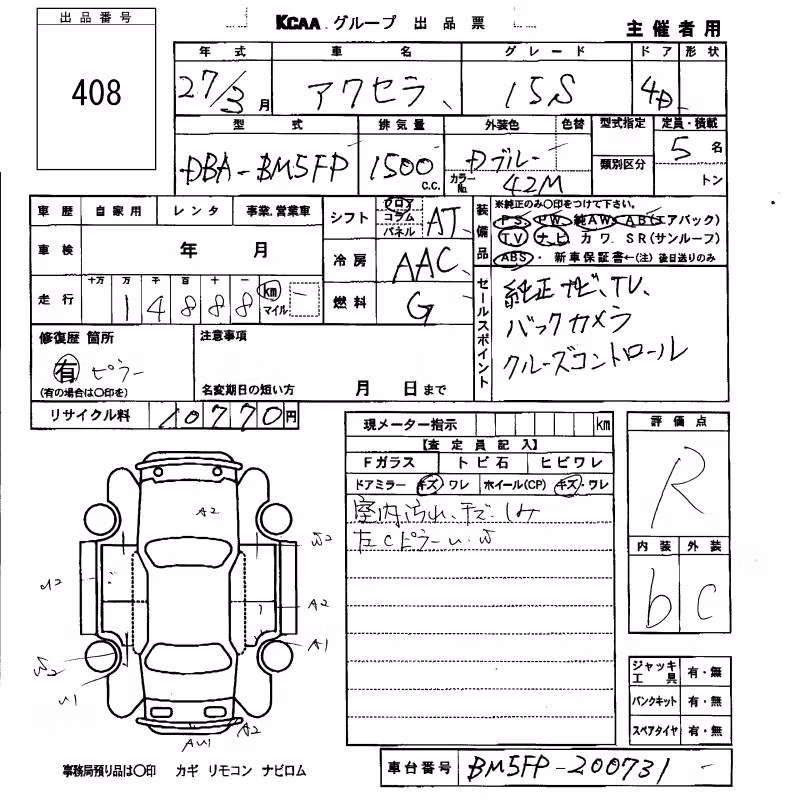 出品番号
408
KCAA グループ 出品票
主催者用
年式 車名 グレード ドア 形状
27/3月 アクセラ 15S 4D
型式 排気量 外装色 色替 型式指定 定員・積載
DBA-BM5FP 1500 c.c. Dブルー 5名
カラーNo. 42M 類別区分 トン
車歴 自家用 レンタ 事業.営業車
シフト フロア コラム パネル AT
装備品 ※純正のみ○印をつけて下さい。
PS PW 純AW AB(エアバック)
TV ナビ カワ SR(サンルーフ)
ABS・新車保証書←(注) 後日送りのみ
車検 年 月
冷房 AAC
走行 十万 万 千 百 十 一
14888 km マイル
燃料 G
セールスポイント
純正ナビ、TV、
バックカメラ
クルーズコントロール
修復歴 箇所
有 ピラー
(有の場合は○印を)
注意事項
名変期日の短い方 月 日まで
リサイクル料 10770円
現メーター指示 km
【査定員記入】
Fガラス トビ石 ヒビワレ
ドアミラー キズ・ワレ ホイール(CP) キズ・ワレ
室内汚れ、キズ、しみ
左Cピラーu.w
評価点
R
内装 外装
b c
A2
W2
A2
A2
A1
W2
U1
AU1
A2
ジャッキ工具 有・無
パンクキット 有・無
スペアタイヤ 有・無
事務局預り品は○印 カギ リモコン ナビロム
車台番号 BM5FP-200731